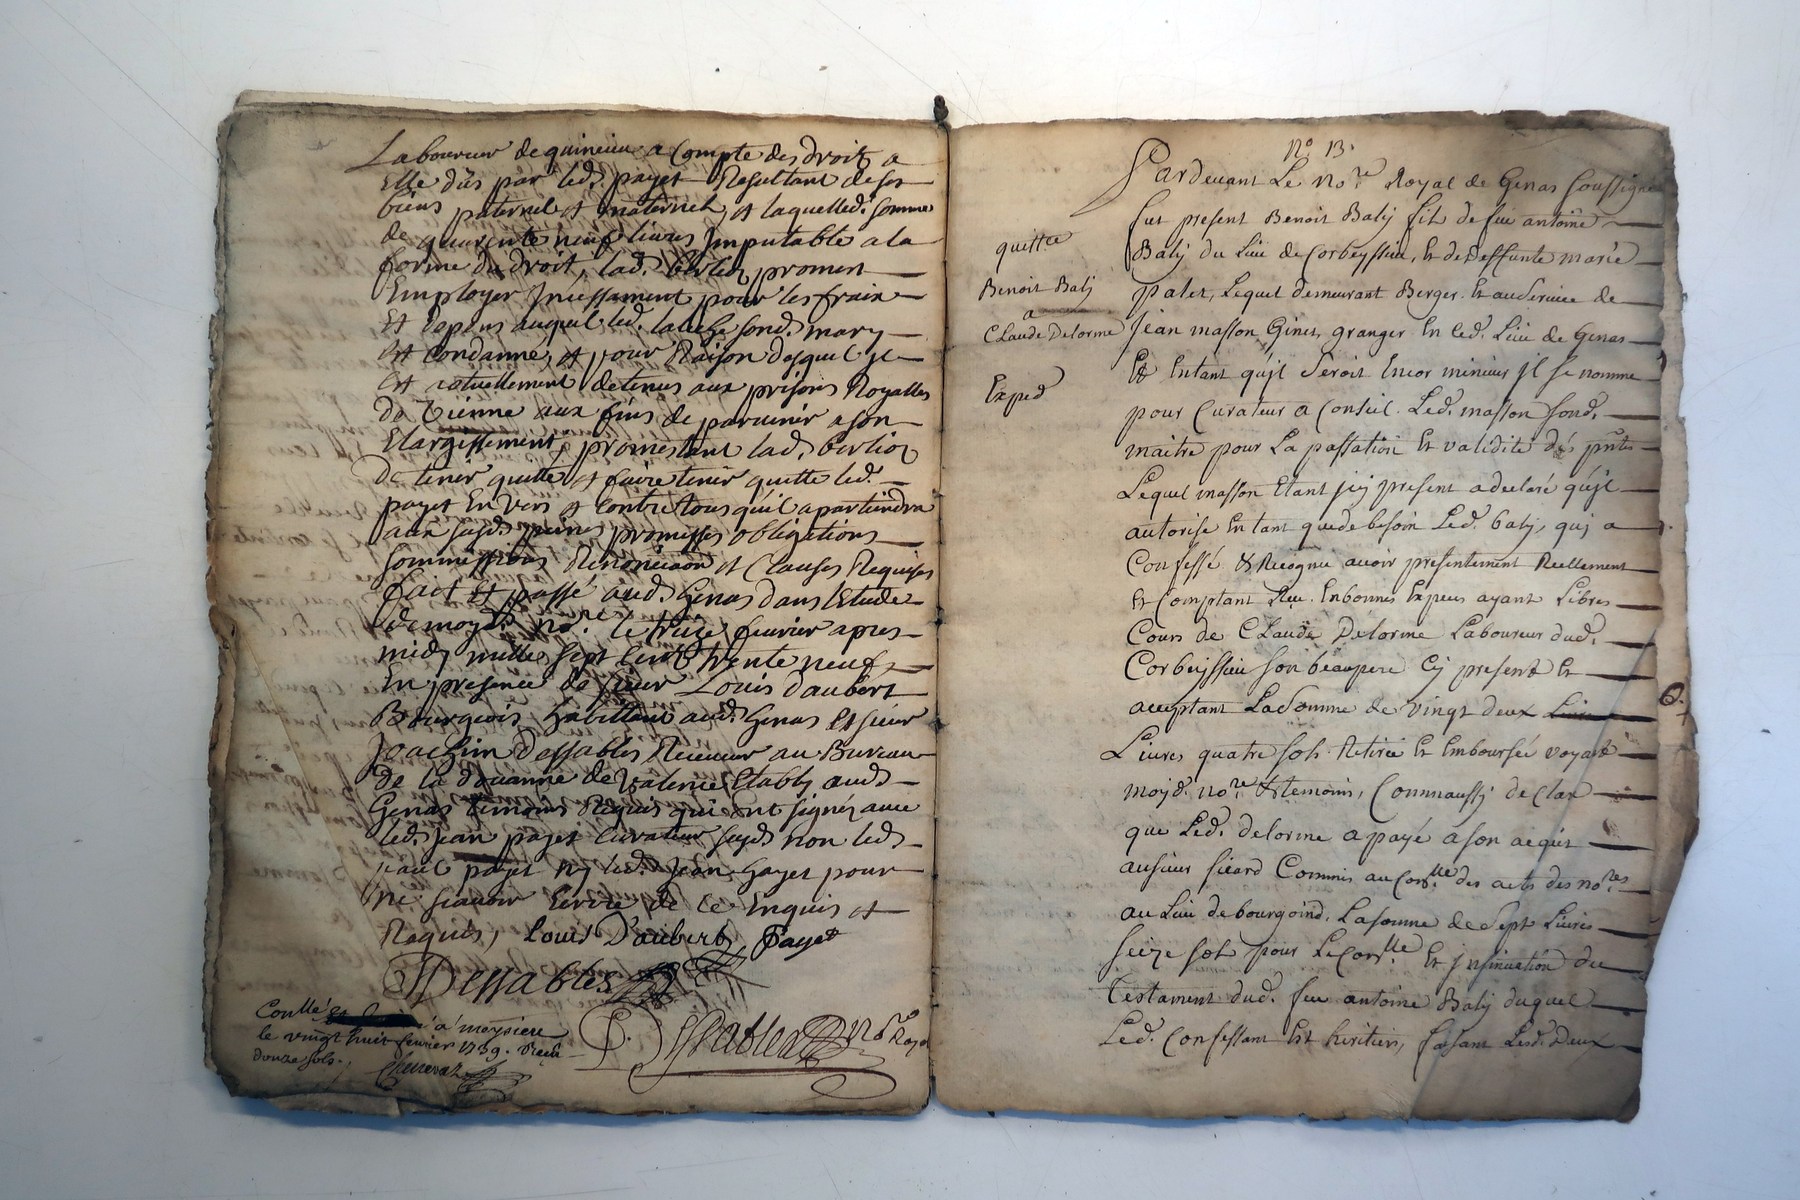 Laboureur de quinieu a Compte des droits a
Elle dûs par led. payet Resultant de ses
biens paternels et maternels, et laquelled. somme
de quarente neuf livres Imputable a la
forme du droit, lad. berlioz proment
Employer Incessament pour les frais
Et depens auquel led. sond. mary
Est condanné, et pour Raison desquel jl
Est actuellement detenus aux prisons Royalles
de Vienne aux fins de parvenir a son
Elargissement, promettant lad. berlioz
de tenir quitte et faire tenir quitte led.
payet En vers et contre tous qu'il apartiendra
aux susd. peines promesses obligations
sommissions Renonciaon et Clauses Requises
fait et passé aud. Genas dans l'Etude
de moyd. no.re le treize fevrier apres
midy mille sept Cent trente neuf
En presence de sieur Louis daubert
Bourgeois habittant aud. Genas et sieur
Joachin dessables Receveur au Bureau
de la douanne de Valence Etably aud.
Genas temoins Requis qui ont signés avec
led. jean payet Curateur susd. non led.
payet ny led. Jean Gayet pour
ne scavoir Ecrire de ce Enquis et
Requis, Louis Daubert Payet
Dessables
Conllé a meysieu
le vingt huit fevrier 1739. Recu
douze sols.
Dessables no.re Roya
N.o 13.
Pardevant Le No.re Royal de Genas soussigné
fut present Benoit Balij fils de feu antoine
Balij du Lieu de Corbeyssieu, et de deffunte marie
palet, Lequel demeurant Berger et au service de
Jean masson Ginet, granger En ced. Lieu de Genas
Et Entant qu'jl seroit Encor mineur jl se nomme
pour Curateur a Conseil Led. masson sond.
maitre pour La passation Et validité des pnts
Lequel masson Etant jcy present a declaré qu'jl
autorise En tant que de besoin Led. balij, quj a
Confessé & Recognu avoir presentement Reellement
Et Comptant Reçu En bonnes Especes ayant Libres
Cours de Claude Delorme Laboureur dud.
Corbeyssieu son beaupere Cy present Et
aceptant La Somme de vingt deux
Livres quatre sols Retirée Et Emboursée voyant
moijd. no.re & temoins, Comm'aussj declare
que Led. delorme a payé a son acquit
au sieur sicard Commis au Con.lle des actes des no.res
au Lieu de bourgoind, La somme de sept Livres
seize sols pour Le Con.lle Et jnsinuation du
testament dud. feu antoine Balij duquel
Led. Confessant Est heritier, faisant Lesd. Deux
quitte
Benoit Balj
a
Claude Delorme
Exped